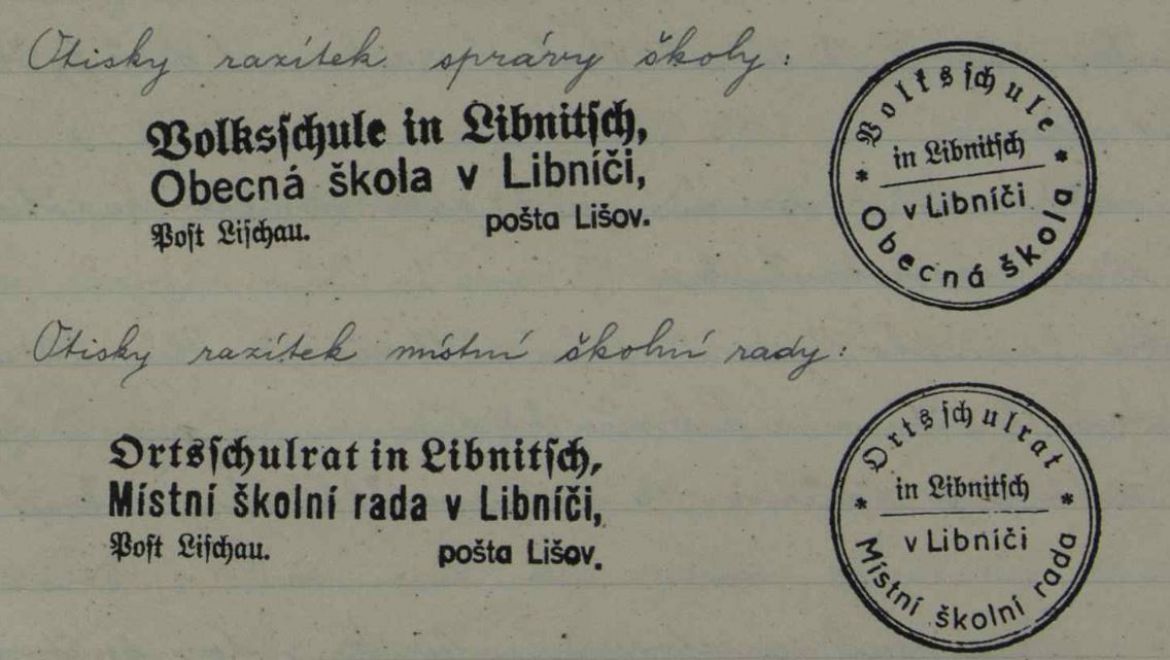 Otisky razítek správy školy:
Volksſchule in Libnitſch,
Obecná škola v Libníči,
Poſt Liſchau. pošta Lišov.
* Volksſchule *
in Libnitſch
v Libníči
Obecná škola
Otisky razítek místní školní rady:
Ortsſchulrat in Libnitſch,
Místní školní rada v Libníči,
Poſt Liſchau. pošta Lišov.
* Ortsſchulrat *
in Libnitſch
v Libníči
Místní školní rada